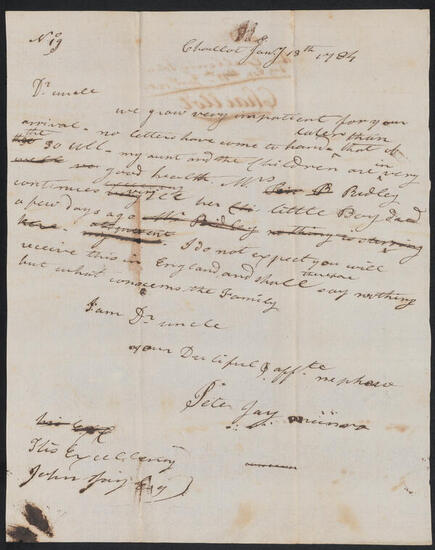 No 19
Chaillot Jany 18th 1784
Dr uncle
we grow very impatient for your
arrival - no letters have come to hand later than that of
the 30 Ult - my aunt and the Children are in very
good health Mrs Ridley
continues her little Boy died
a few days ago Mr Ridley nothing
here - at present I do not expect you will
receive this in England and shall say nothing
but what concerns the Family
I am Dr uncle
your Dutiful & affte nephew
Peter Jay Munro
his Exc
His Excellency
John Jay Esq
Chaillot